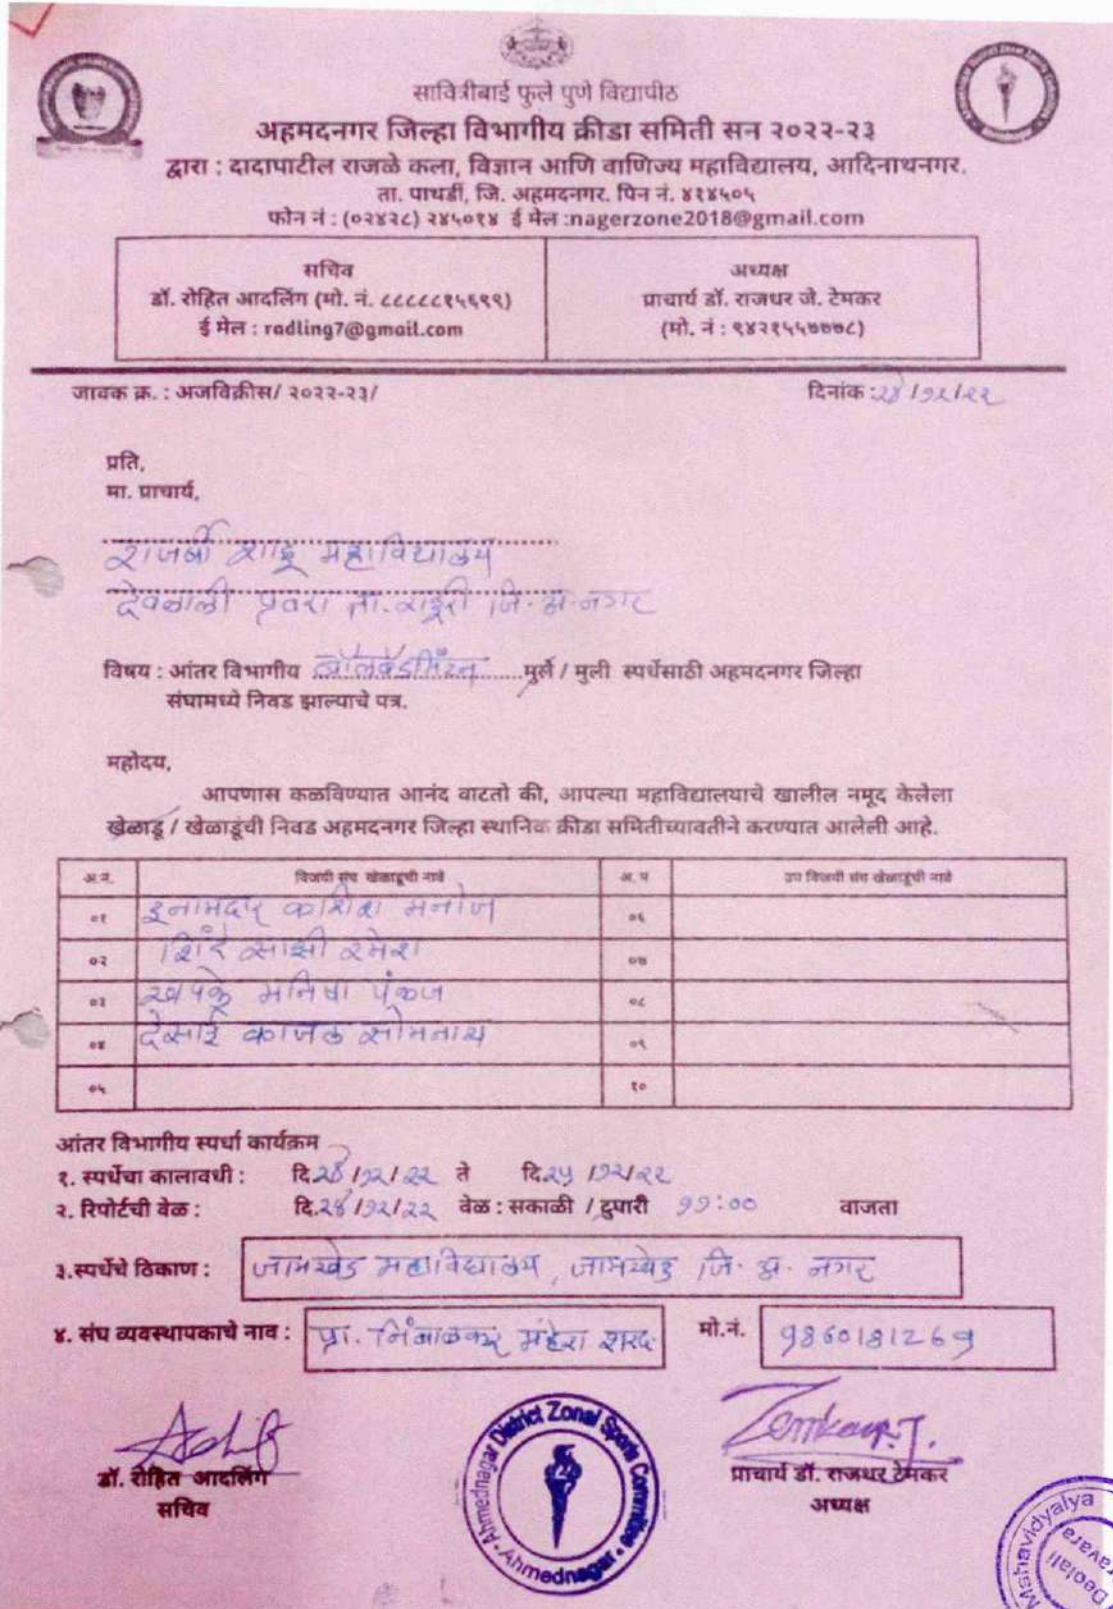 सावित्रीबाई फुले पुणे विद्यापीठ
अहमदनगर जिल्हा विभागीय क्रीडा समिती सन २०२२-२३
द्वारा : दादापाटील राजळे कला, विज्ञान आणि वाणिज्य महाविद्यालय, आदिनाथनगर.
ता. पाथर्डी, जि. अहमदनगर. पिन नं. ४१४५०५
फोन नं : (०२४२८) २४५०१४ ई मेल :nagerzone2018@gmail.com
सचिव
डॉ. रोहित आदलिंग (मो. नं. ८८८८८१५६९९)
ई मेल : radling7@gmail.com
अध्यक्ष
प्राचार्य डॉ. राजधर जे. टेमकर
(मो. नं : ९४२१५५७७७८)
जावक क्र. : अजविक्रीस/ २०२२-२३/
दिनांक :२४/१२/२२
प्रति,
मा. प्राचार्य,
राजर्षी शाहू महाविद्यालय
देवळाली प्रवरा ता. राहूरी जि. अ. नगर
विषय : आंतर विभागीय बॉलबॅडमिंटन मुले / मुली स्पर्धेसाठी अहमदनगर जिल्हा
संघामध्ये निवड झाल्याचे पत्र.
महोदय,
आपणास कळविण्यात आनंद वाटतो की, आपल्या महाविद्यालयाचे खालील नमूद केलेला
खेळाडू / खेळाडूंची निवड अहमदनगर जिल्हा स्थानिक क्रीडा समितीच्यावतीने करण्यात आलेली आहे.
अ.नं. विजयी संघ खेळाडूंची नावे अ. नं उप विजयी संघ खेळाडूंची नावे
०१ इनामदार काशिश मनोज ०६
०२ शिंदे साक्षी रमेश ०७
०३ खपके मनिषा पंकज ०८
०४ देसाई काजल सोमनाथ ०९
०५ १०
आंतर विभागीय स्पर्धा कार्यक्रम
१. स्पर्धेचा कालावधी : दि.२४/१२/२२ ते दि.२५/१२/२२
२. रिपोर्टची वेळ : दि.२४/१२/२२ वेळ : सकाळी / दुपारी ११:०० वाजता
३.स्पर्धेचे ठिकाण : जामखेड महाविद्यालय, जामखेड जि. अ. नगर
४. संघ व्यवस्थापकाचे नाव : प्रा. निंबाळकर शरद
मो.नं. 9860181269
डॉ. रोहित आदलिंग
सचिव
Ahmednagar District Zonal Sports Committee
Ahmednagar
Temkar
प्राचार्य डॉ. राजधर टेमकर
अध्यक्ष
Mahavidyalya
Deolali